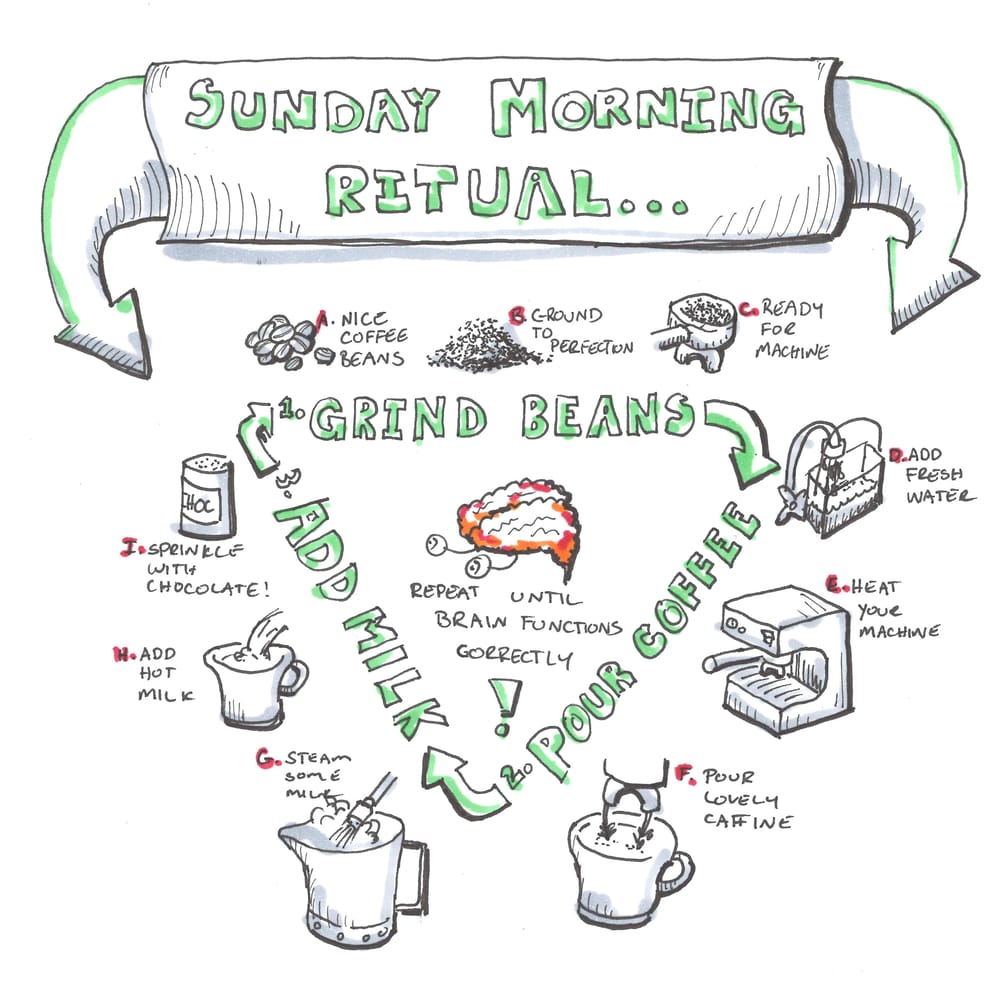 SUNDAY MORNING
RITUAL...
A. NICE
COFFEE
BEANS
B. GROUND
TO
PERFECTION
C. READY
FOR
MACHINE
1. GRIND BEANS
D. ADD
FRESH
WATER
E. HEAT
YOUR
MACHINE
2. POUR COFFEE
F. POUR
LOVELY
CAFFINE
G. STEAM
SOME
MILK
3. ADD MILK
H. ADD
HOT
MILK
I. SPRINKLE
WITH
CHOCOLATE!
CHOC
REPEAT UNTIL
BRAIN FUNCTIONS
CORRECTLY
!